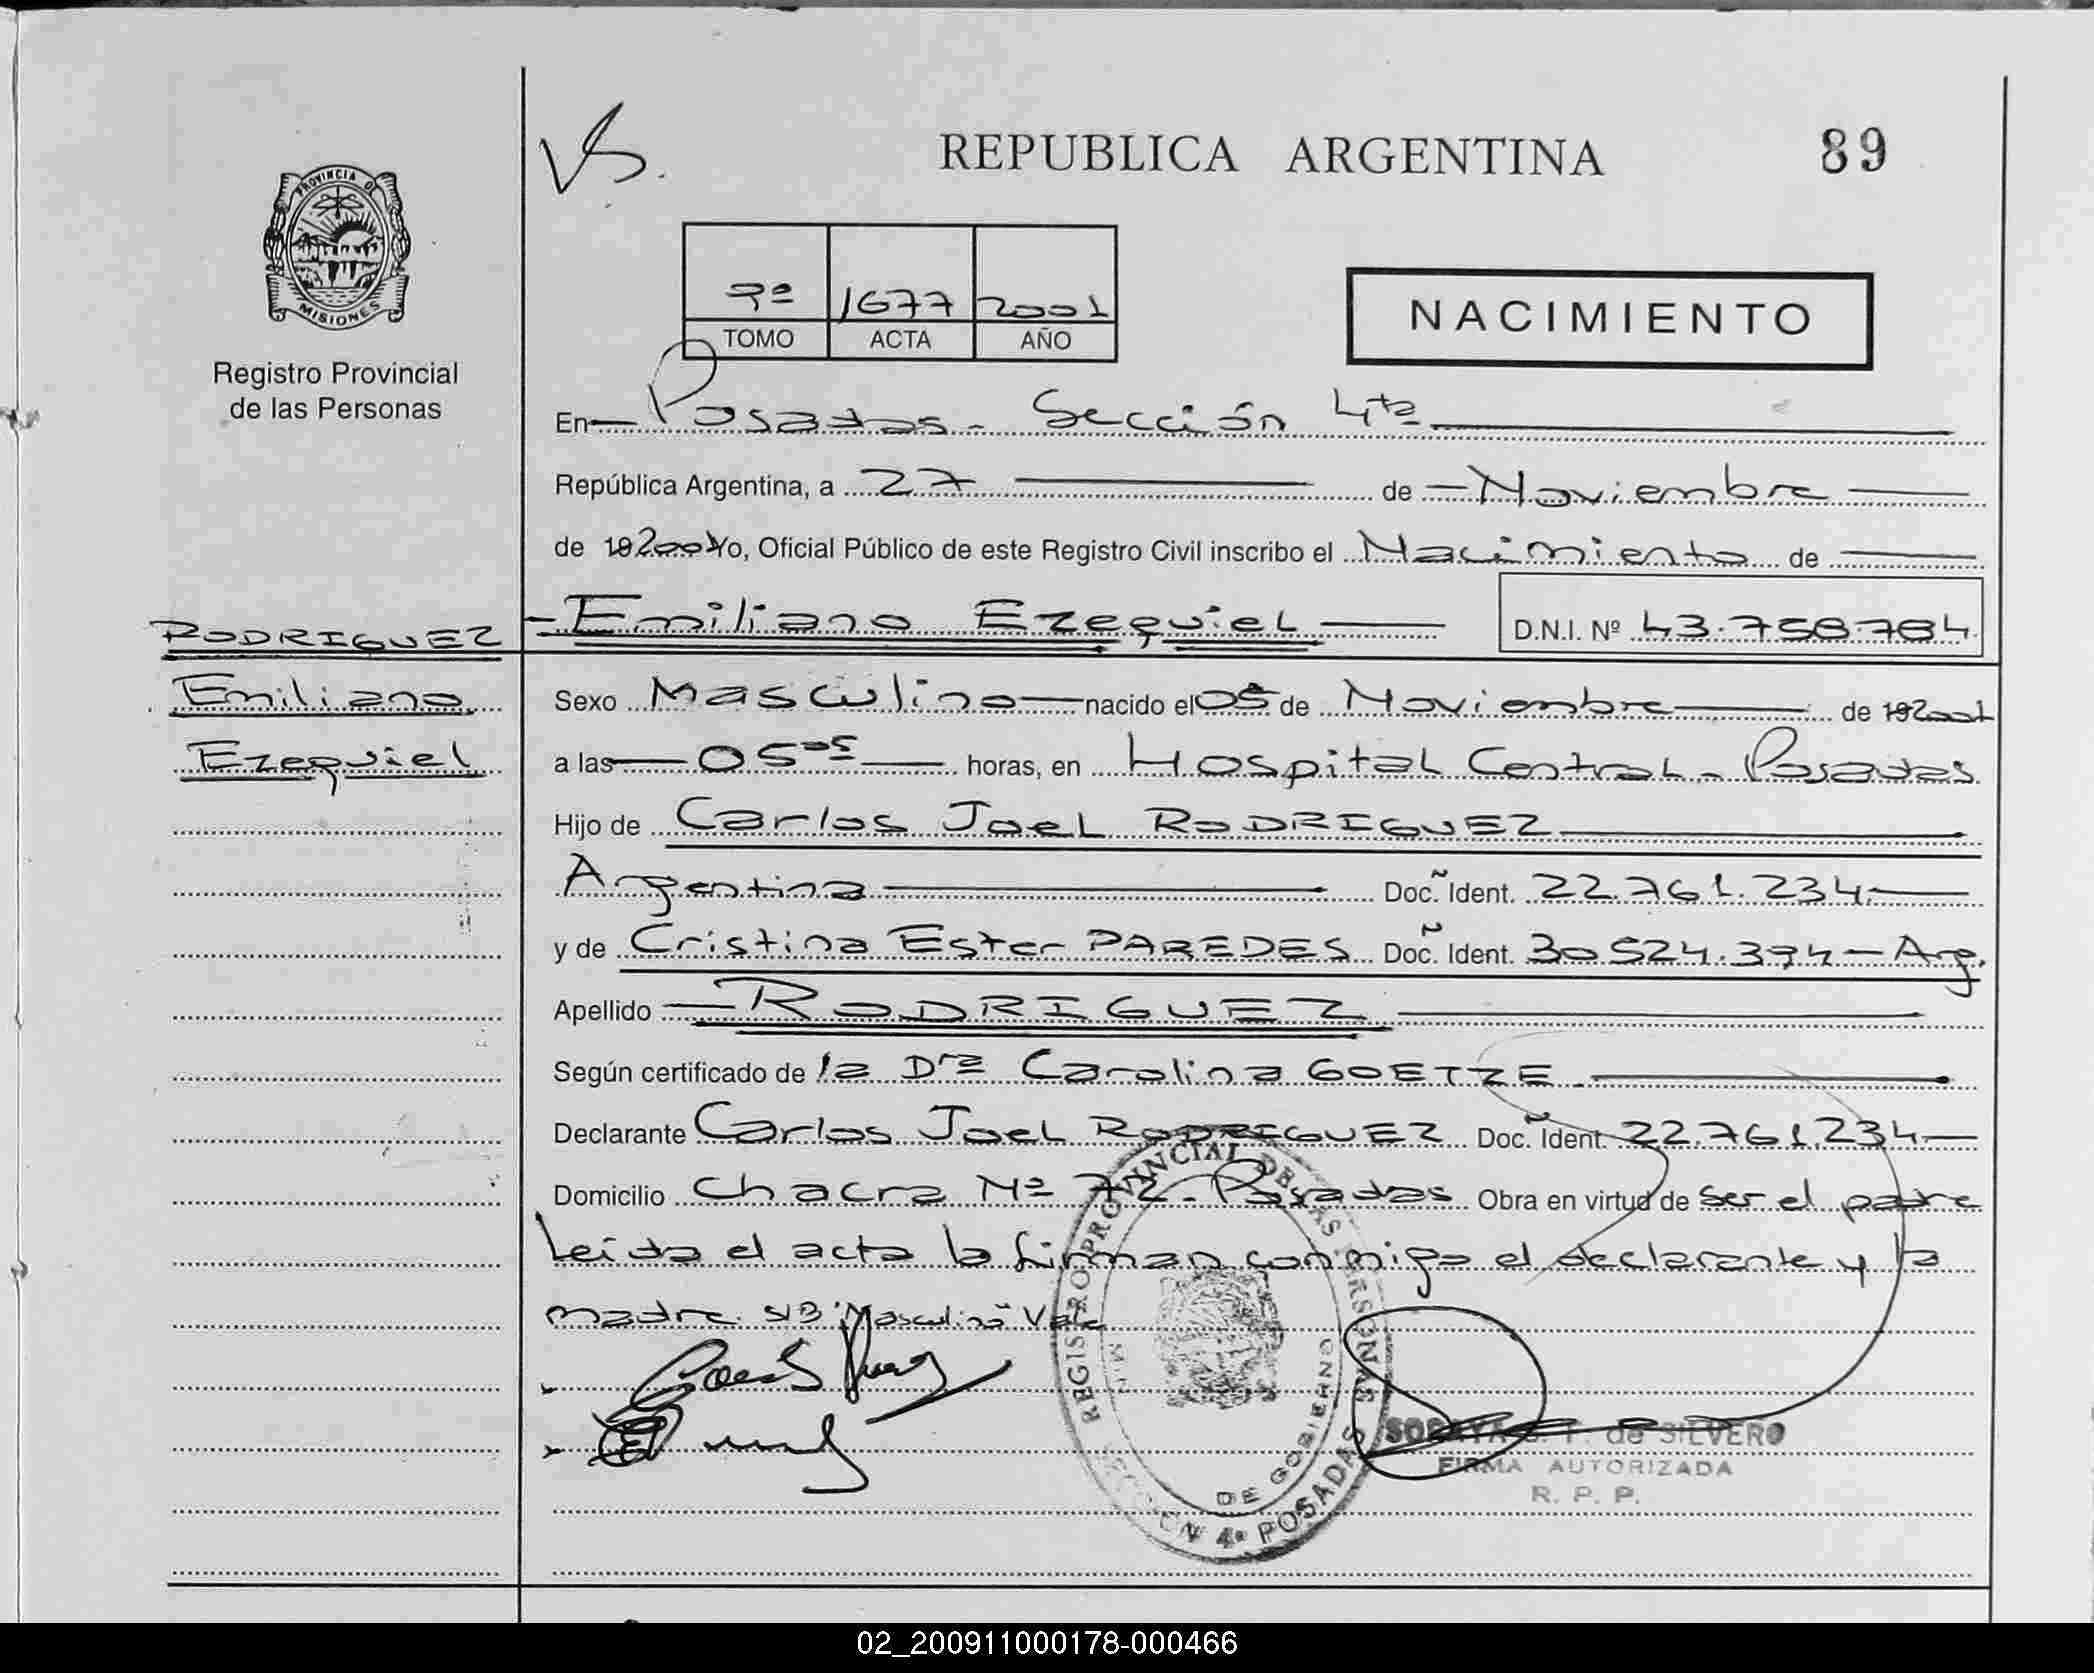 VS.
REPUBLICA ARGENTINA
89
PROVINCIA DE
MISIONES
Registro Provincial
de las Personas
1677 2001
TOMO ACTA AÑO
NACIMIENTO
En Posadas - Sección 4ta
República Argentina, a 27 de Noviembre
de 19 2001 Yo, Oficial Público de este Registro Civil inscribo el Nacimiento de
RODRIGUEZ
Emiliano Ezequiel
D.N.I. Nº 43.758.784
Emiliano
Ezequiel
Sexo Masculino nacido el 05 de Noviembre de 19 2001
a las 05 05 horas, en Hospital Central - Posadas
Hijo de Carlos Joel RODRIGUEZ
Argentina Doc. Ident. 22.761.234
y de Cristina Ester PAREDES Doc. Ident. 30.524.394 - Arg.
Apellido RODRIGUEZ
Según certificado de la Dra Carolina GOETZE
Declarante Carlos Joel RODRIGUEZ Doc. Ident. 22.761.234
Domicilio Chacra Nº 72 - Posadas Obra en virtud de ser el padre
Leida el acta la firman conmigo el declarante y la
madre S/B "Masculino" Vale
REGISTRO PROVINCIAL DE LAS PERSONAS
DE GOBIERNO
SECCION 4ª POSADAS
SORAYA de SILVERO
FIRMA AUTORIZADA
R. P. P.
02_200911000178-000466